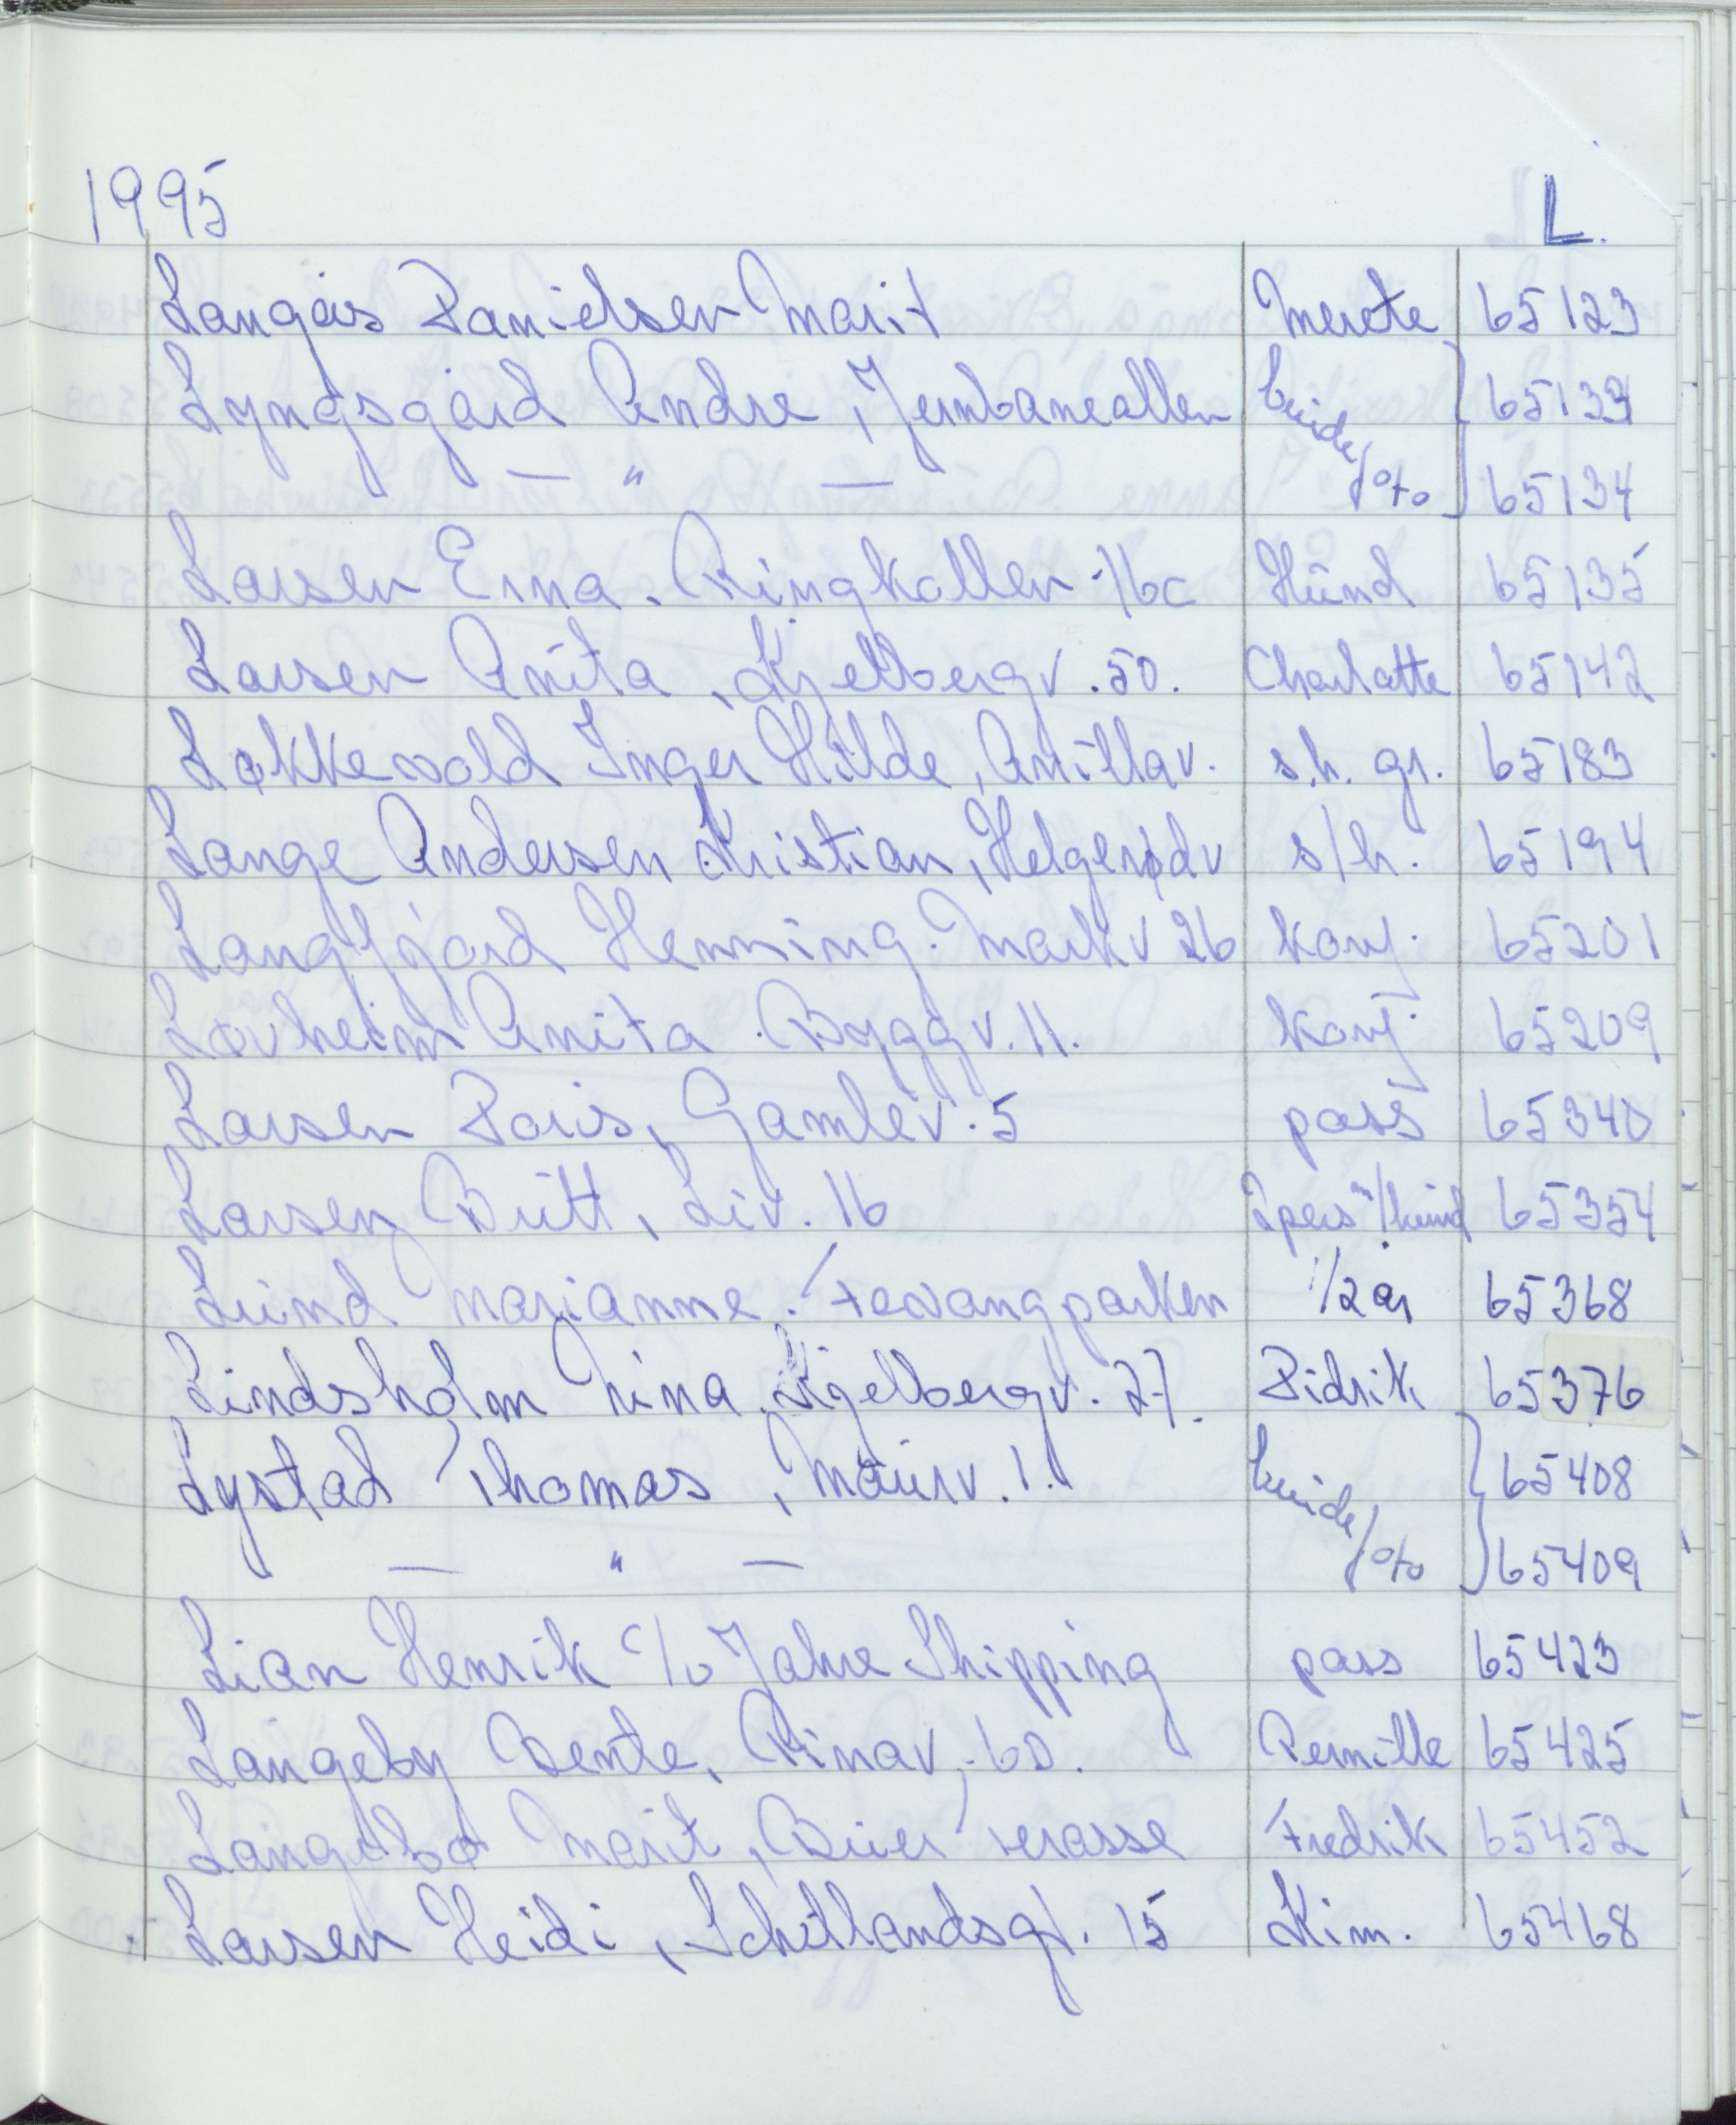 1995 L.
Langås Danielsen Marit Merete 65123
Lyngsgård Andre, Jernbanealleen 65133
— " — 65134
Larsen Erna. Ringkollen 16c Hund 65135
Larsen Anita, Kjellbergv. 50. Charlotte 65142
Løkkevold Inger Hilde, Amillav. s.h. gr. 65183
Lange Andersen Kristian, Helgerødv s/h. 65194
Langfjord Henning. Markv 26 konf. 65201
Løvheim Anita. Byggv. 11. konf. 65209
Larsen Doris, Gamlev. 5 pass 65340
Larsen Britt, Liv. 16 2 pers m/hund 65354
Lund Marianne. Fevangparken 1/2 år 65368
Lindsholm Nina, Kjellbergv. 27. Didrik 65376
Lystad Thomas, Maurv. 1. 65408
— " — 65409
Lian Henrik c/o Jahre Shipping pass 65423
Langeby Bente, Rinav. 60. Pernille 65425
Langebø Marit, Buer terasse Fredrik 65452
Larsen Heidi, Schillandsgt. 15 Kim. 65468